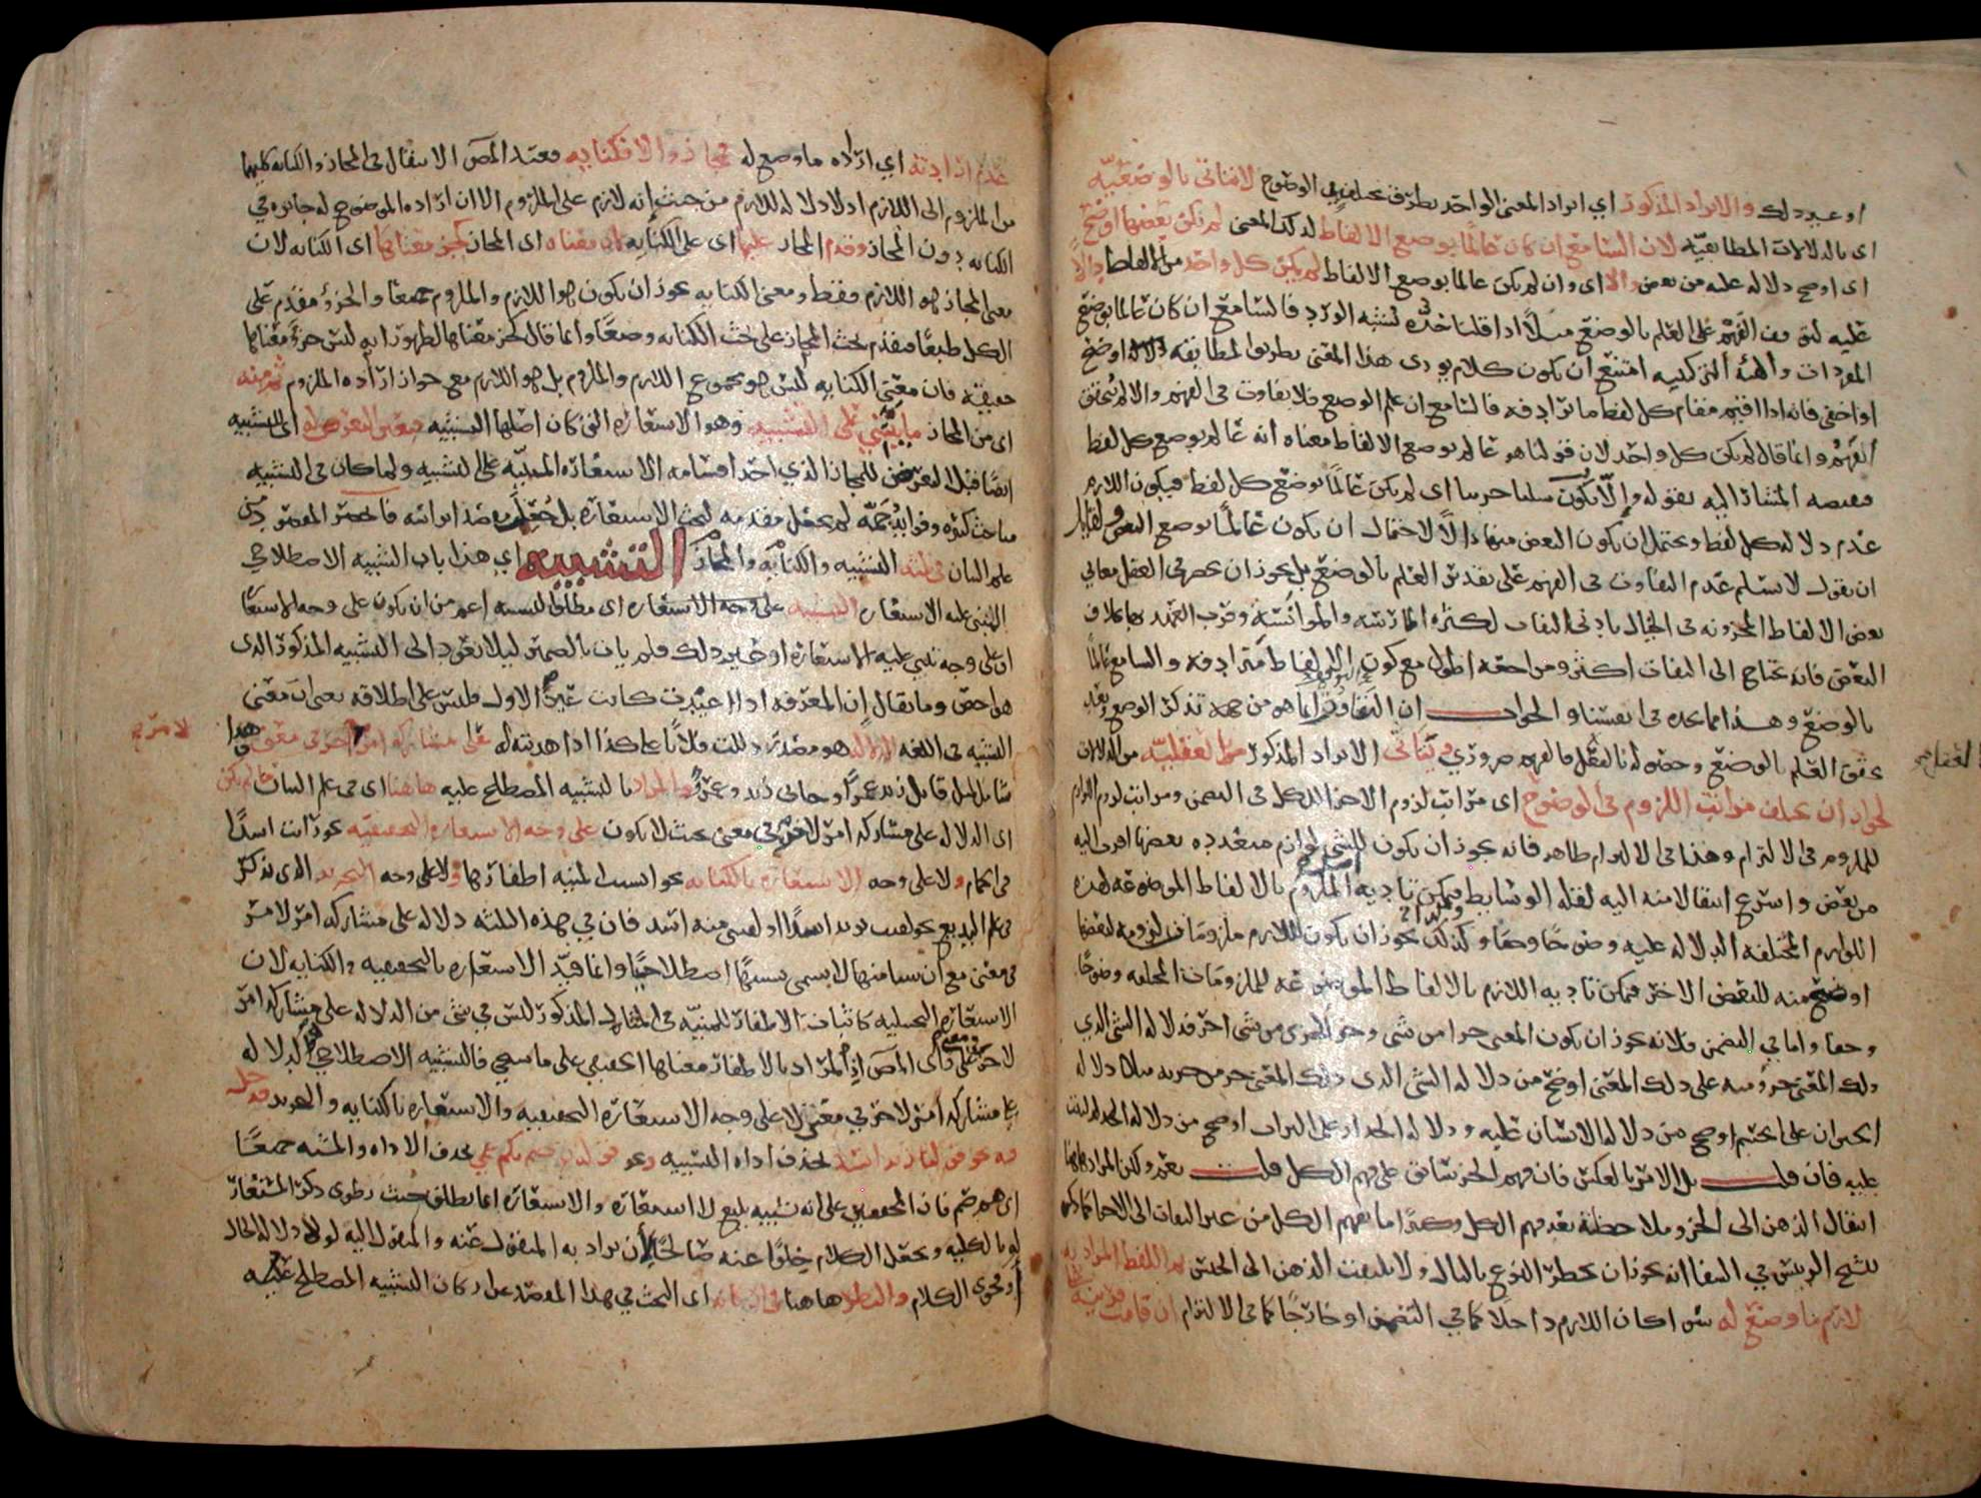 او غير ذلك والايراد المذكور اي ايراد المعنى الواحد بطرق مختلفة في الوضوح لا يتاتى بالوضعية
اى بالدلالات المطابقيه لان السامع ان كان عالما بوضع الالفاظ لذلك المعنى لم يكن بعضها اوضح
اى اوضح دلاله عليه من بعض والا اى وان لم يكن عالما بوضع الالفاظ لم يكن كل واحد من الالفاظ دالا
عليه لتوقف الفهم على العلم بالوضع مثلا اذا قلنا خده يشبه الورد فالسامع ان كان عالما بوضع
المفردات والهيئة التركيبيه امتنع ان يكون كلام يودى هذا المعنى بطريق المطابقه دلاله اوضح
او اخفى فانه اذا اقيم مقام كل لفظ ما يرادفه فالسامع ان علم الوضع فلا تفاوت فى الفهم والا لم يتحقق
الفهم وانما قال لم يكن كل واحد لان قولنا هو عالم بوضع الالفاظ معناه انه عالم بوضع كل لفظ
فنقيضه المشار اليه بقوله والا يكون سلبا جزييا اى لم يكن عالما بوضع كل لفظ فيكون اللازم
عدم دلاله كل لفظ ويحتمل ان يكون البعض منها دالا لاحتمال ان يكون عالما بوضع البعض ولقايل
ان يقول لا نسلم عدم التفاوت فى الفهم على تقدير العلم بالوضع بل يجوز ان يحضر فى العقل معاني
بعض الالفاظ المخزونه فى الخيال بادنى التفات لكثرة الممارسة والموانسة وقرب العهد بها بخلاف
البعض فانه يحتاج الى التفات اكثر ومراجعه اطول مع كون الالفاظ مترادفه والسامع عالما
بالوضع وهذا مما نجده فى انفسنا والجواب ان التفاوت انما هو من جهة تذكر الوضع وبعد
تحقق العلم بالوضع وحصوله بالفعل فالفهم ضروري ويتاتى الايراد المذكور بالعقلية من الدلالات
لجواز ان يختلف مراتب اللزوم فى الوضوح اى مراتب لزوم الاجزا للكل فى التضمن ومراتب لزوم اللوازم
للملزوم فى الالتزام وهذا فى الالتزام ظاهر فانه يجوز ان يكون للشي لوازم متعدده بعضها اقرب اليه
من بعض واسرع انتقالا منه اليه لقلة الوسايط فيمكن تاديه الملزوم بالالفاظ الموضوعه لهذه
اللوازم المختلفه الدلاله عليه وضوحا وخفا وكذلك يجوز ان يكون للازم ملزومات لزومه لبعضها
اوضح منه للبعض الاخر فيمكن تاديه اللازم بالالفاظ الموضوعه للملزومات المختلفه وضوحا
وخفا واما في التضمن فلانه يجوز ان يكون المعنى جزا من شي وجز الجزء من شي اخر فدلاله الشي الذي
ذلك المعنى جزؤ منه على ذلك المعنى اوضح من دلاله الشي الذى ذلك المعنى جز من جزيه مثلا دلاله
الحيوان على الجسم اوضح من دلاله الانسان عليه ودلاله الجدار على التراب اوضح من دلاله البيت
عليه فان قلت بل الامر بالعكس فان فهم الجز سابق على فهم الكل قلت نعم ولكن المراد هاهنا
انتقال الذهن الى الجز وملاحظته بعد فهم الكل وكثيرا ما يفهم الكل من غير التفات الى الاجزا كما ذكر
الشيخ الرييس في الشفا انه يجوز ان يخطر النوع بالبال ولا يلتفت الذهن الى الجنس ثم اللفظ المراد به
لازم ما وضع له سوا كان اللازم داخلا كما في التضمن او خارجا كما فى الالتزام ان قامت قرينة على
عدم ارادته اي ارادة ما وضع له فمجاز والا فكنايه فعند المص الانتقال فى المجاز والكنايه كليهما
من الملزوم الى اللازم اذ لا دلاله للازم من حيث انه لازم على الملزوم الا ان ارادة الموضوع له جايزه فى
الكنايه دون المجاز وقدم المجاز عليها اى على الكنايه لان معناه اى المجاز كجز معناها اى الكنايه لان
معنى المجاز هو اللازم فقط ومعنى الكنايه يجوز ان يكون هو اللازم والملزوم جميعا والجزؤ مقدم على
الكل طبعا فيقدم بحث المجاز على بحث الكنايه وضعا وانما قال كجز معناها لظهور انه ليس جزؤ معناها
حقيقة فان معنى الكنايه ليس هو مجموع اللازم والملزوم بل هو اللازم مع جواز ارادة الملزوم ثم منه
اى من المجاز ما يبتنى على التشبيه وهو الاستعاره التى كان اصلها التشبيه فتعين التعرض له اى للتشبيه
ايضا قبل التعرض للمجاز الذي احد اقسامه الاستعاره المبنيه على التشبيه ولما كان فى التشبيه
مباحث كثيره وفوايد جمه لم يجعل مقدمه لبحث الاستعاره بل جعل مقصدا براسه فانحصر المقصود من
علم البيان فى الثلثه التشبيه والكنايه والمجاز التشبيه اي هذا باب التشبيه الاصطلاحي
المبنى عليه الاستعاره التشبيه اى مطلق التشبيه اعم من ان يكون على وجه الاستعا
او على وجه تبنى عليه الاستعاره او غير ذلك فلم يات بالضمير ليلا يعود الى التشبيه المذكور الذى
هو اخص وما يقال ان المعرفه اذا اعيدت كانت عين الاول فليس على اطلاقه يعنى ان معنى
التشبيه فى اللغه الدلاله هو مصدر دللت فلانا على كذا اذا هديته له على مشاركه امر لاخر فى معنى وهذا
شامل لمثل قاتل زيد عمرا وجانى زيد وعمرو والمراد بالتشبيه المصطلح عليه هاهنا اى فى علم البيان ما لم يكن
اى الدلاله على مشاركه امر لاخر فى معنى بحيث لا يكون على وجه الاستعاره التحقيقيه نحو رايت اسدا
فى الحمام ولا على وجه الاستعاره بالكنايه نحو انشبت المنيه اظفارها ولا على وجه التجريد الذى يذكر
فى علم البديع نحو لقيت بزيد اسدا او لقينى منه اسد فان في هذه الثلثه دلاله على مشاركه امر لامر
فى معنى مع ان شيا منها لا يسمى تشبيها اصطلاحيا وانما قيد الاستعاره بالتحقيقيه والكنايه لان
الاستعاره التخييليه كاثبات الاظفار للمنيه فى المثال المذكور ليس في شى من الدلاله على مشاركه امر
لاخر على راى المص اذ المراد بالاظفار معناها الحقيقي على ما سيجي فالتشبيه الاصطلاحي هو الدلاله
على مشاركه امر لاخر في معنى لا على وجه الاستعاره التحقيقيه والاستعاره بالكنايه والتجريد فدخل
فيه نحو قولنا زيد اسد بحذف اداة التشبيه ونحو قوله تعالى صم بكم عمي بحذف الاداه والمشبه جميعا
اى هم صم فان المحققين على انه تشبيه بليغ لا استعاره والاستعاره انما يطلق حيث يطوى ذكر المستعار
له بالكليه ويجعل الكلام خلوا عنه صالحا لان يراد به المنقول عنه والمنقول اليه لولا دلاله الحال
او فحوى الكلام والنظر هاهنا فى اركانه اى البحث في هذا المقصد عن اركان التشبيه المصطلح عليه